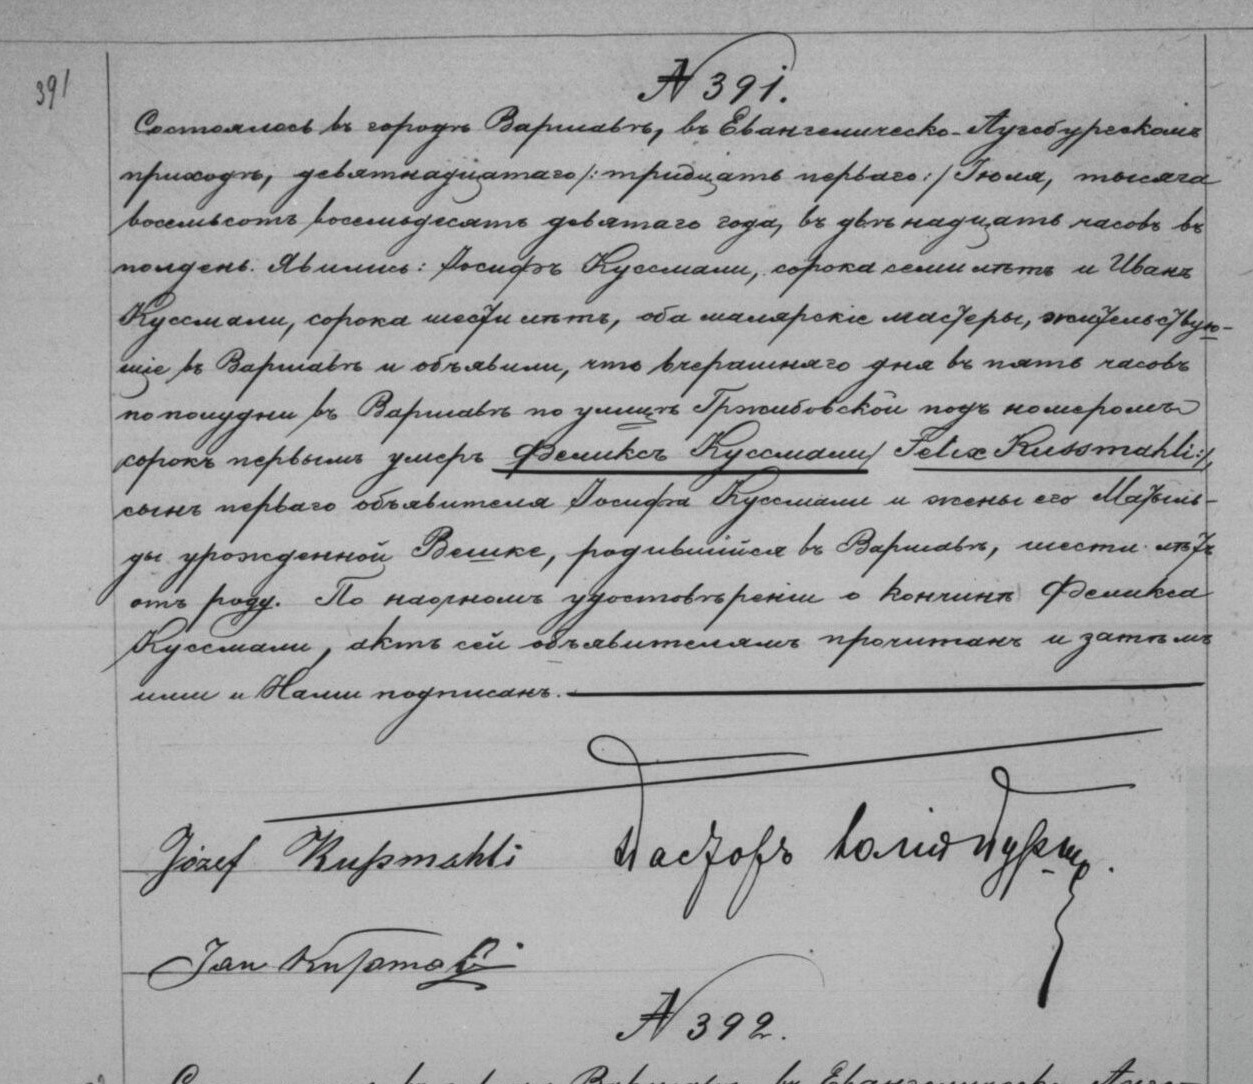 391
N 391.
Состоялось въ городѣ Варшавѣ, въ Евангелическо-Аугсбургскомъ
приходѣ, девятнадцатаго /: тридцать перваго :/ Іюля, тысяча
восемьсотъ восемьдесятъ девятаго года, въ двѣнадцать часовъ въ
полдень. Явились: Іосифъ Куссмали, сорока семи лѣтъ и Иванъ
Куссмали, сорока шести лѣтъ, оба малярскіе мастеры, жительствую-
щіе въ Варшавѣ и объявили, что вчерашняго дня въ пять часовъ
по полудни въ Варшавѣ по улицѣ Гржибовской подъ номеромъ
сорокъ первымъ умеръ Феликсъ Куссмали / Felix Kussmahli :/,
сынъ перваго объявителя Іосифа Куссмали и жены его Матыль-
ды урожденной Вешке, родившійся въ Варшавѣ, шести лѣтъ
отъ роду. По наочномъ удостовѣреніи о кончинѣ Феликса
Куссмали, актъ сей объявителямъ прочитанъ и затѣмъ
ими и Нами подписанъ.
Józef Kußmahli Пасторъ
Jan
N 392.